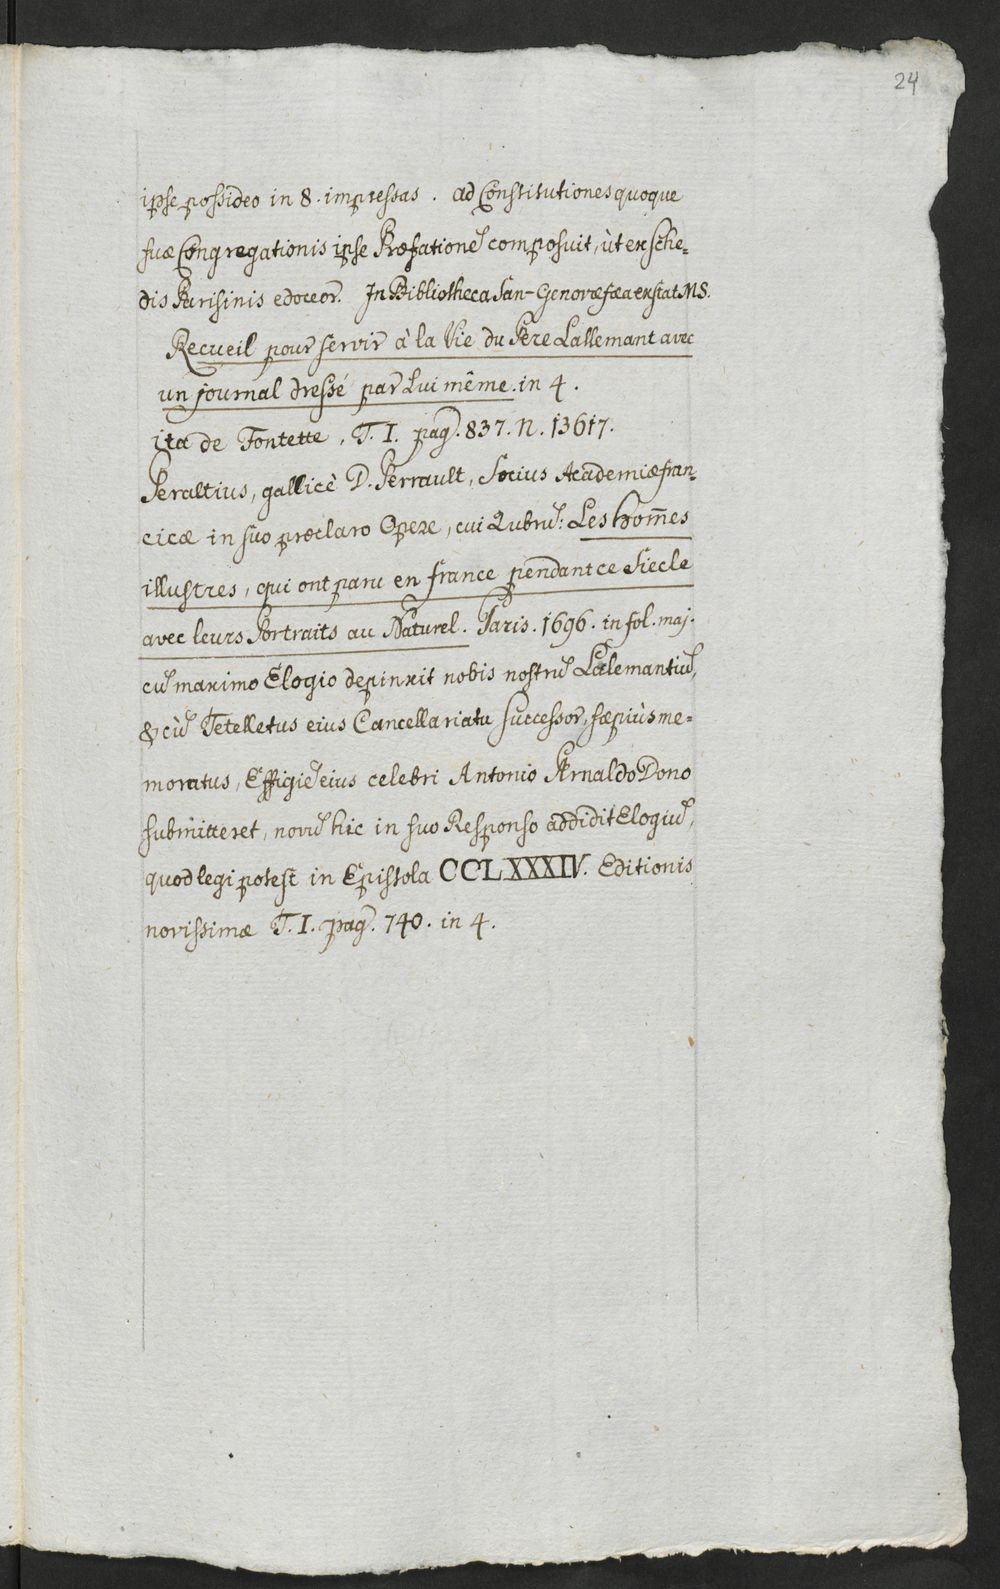 24
ipse possideo in 8. impressas. ad Constitutiones quoque
suæ Congregationis ipse Præfationē composuit, ùt ex Sche=
dis Parisinis edoceor. In Bibliotheca San-Genovefæa exstat MS.
Recueil pour servir à la Vie du Pere Lallemant avec
un journal dressé par Lui même. in 4.
ita de Fontette, T. I. pag. 837. N. 13617.
Peraltius, gallicè D. Perrault, Socius Academiæ fran=
cicæ in suo præclaro Opere, cui Rubrū: Les hom̄es
illustres, qui ont paru en france pendant ce Siecle
avec leurs Portraits au Naturel. Paris. 1696. in fol. maj.
cū maximo Elogio depinxit nobis nostrū Lalemantiū,
& cù̄ Tetelletus eius Cancellariatu Successor, sæpiùs me=
moratus, Effigiē eius celebri Antonio Arnaldo Dono
submitteret, novū hic in suo Responso addidit Elogiū,
quod legi potest in Epistola CCLXXXIV. Editionis
novissimæ T. I. pag. 740. in 4.